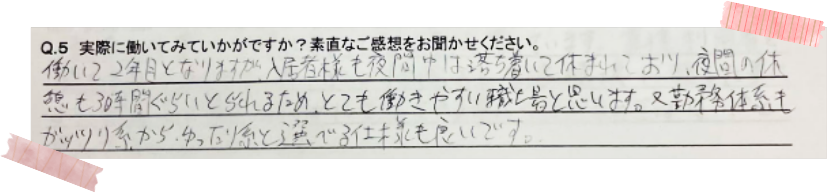 Q.5 実際に働いてみていかがですか？素直なご感想をお聞かせください。
働いて2年目となりますが、入居者様も夜間中は落ち着いて休まれており、夜間の休
憩も3時間ぐらいとられるため、とても働きやすい職場と思います。又勤務体系も
ガッツリ系から、ゆったり系と選べる仕様も良いです。